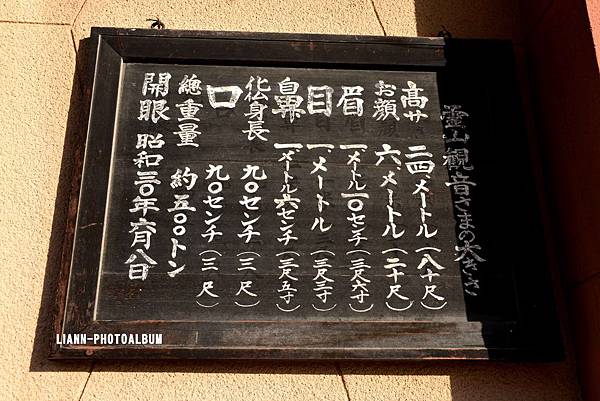 霊山観音さまの大きさ
高サ 二四、メートル(八十尺)
お顔 六、メートル(二十尺)
眉 一メートル一〇センチ(三尺六寸)
目 一、メートル(三尺三寸)
鼻 一メートル六センチ(三尺五寸)
化身長 九〇センチ(三尺)
口 九〇センチ(三尺)
總重量 約五〇〇トン
開眼 昭和三〇年六月八日
LIANN-PHOTOALBUM